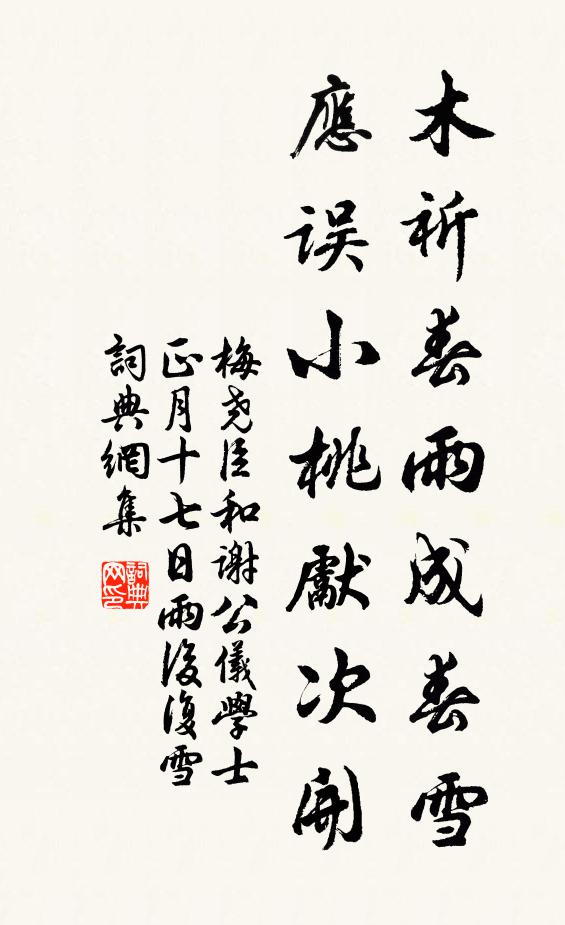 木祈春雨成春雪
應误小桃獻次開
梅尧臣和谢公儀學士
正月十七日雨後復雪
詞典網集
詞典网印